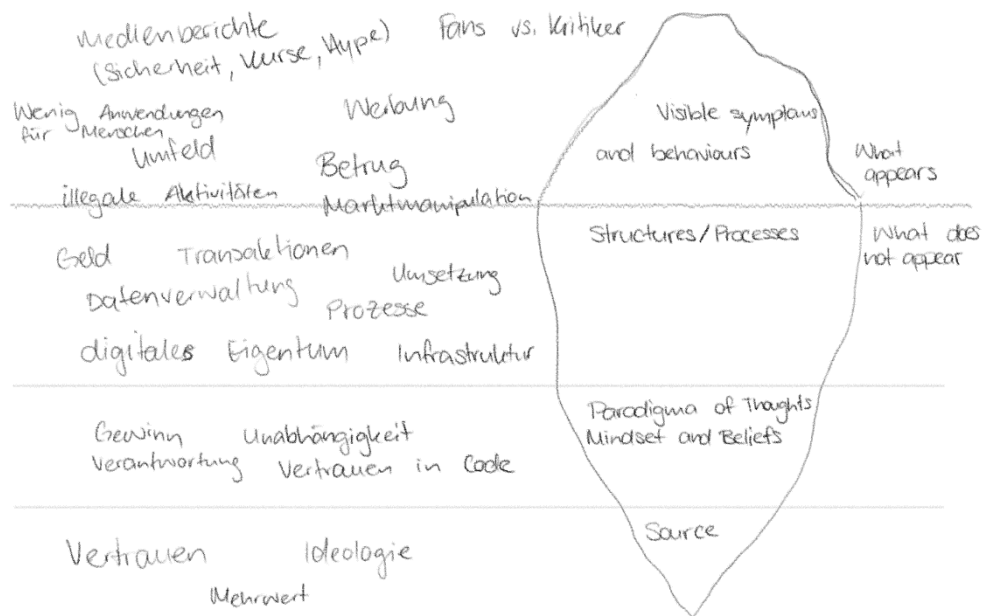 Medienberichte
(Sicherheit, Kurse, Hype)
Fans vs. Kritiker
Wenig Anwendungen
für Menschen
Werbung
Umfeld
Betrug
illegale Aktivitäten
Marktmanipulation
Visible symptoms
and behaviours
What
appears
Geld Transaktionen
Umsetzung
Datenverwaltung
Prozesse
digitales Eigentum Infrastruktur
Structures/Processes
What does
not appear
Gewinn Unabhängigkeit
Verantwortung Vertrauen in Code
Paradigma of Thoughts
Mindset and Beliefs
Vertrauen Ideologie
Mehrwert
Source